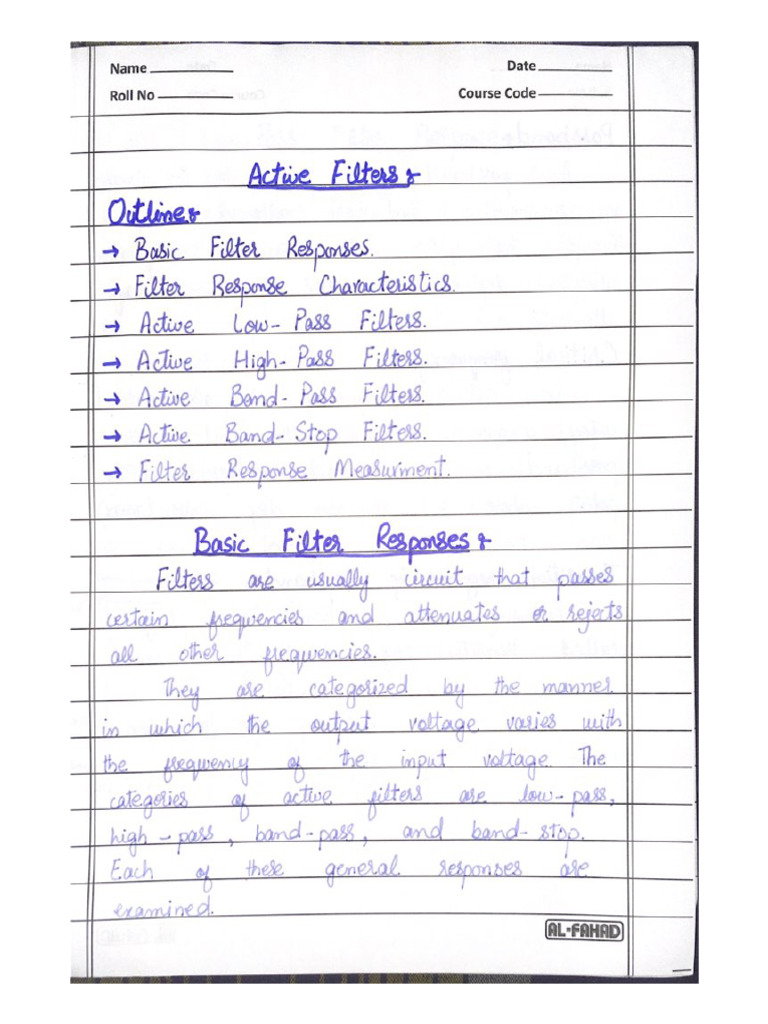 Name Date
Roll No Course Code
Active Filters:
Outline:
→ Basic Filter Responses.
→ Filter Response Characteristics.
→ Active Low-Pass Filters.
→ Active High-Pass Filters.
→ Active Band-Pass Filters.
→ Active Band-Stop Filters.
→ Filter Response Measurment.
Basic Filter Responses:
Filters are usually circuit that passes
certain frequencies and attenuates or rejects
all other frequencies.
They are categorized by the manner
in which the output voltage varies with
the frequency of the input voltage. The
categories of active filters are low-pass,
high-pass, band-pass, and band-stop.
Each of these general responses are
examined.
AL-FAHAD